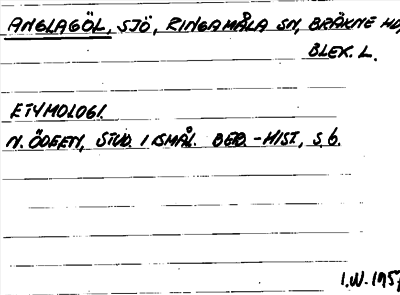 ANGLAGÖL, SJÖ, RINGAMÅLA SN, BRÄKNE HD,
BLEK. L.
ETYMOLOGI.
N. ÖDEEN, STUD. I SMÅL. BEB.-HIST, S. 6.
I.W. 1957